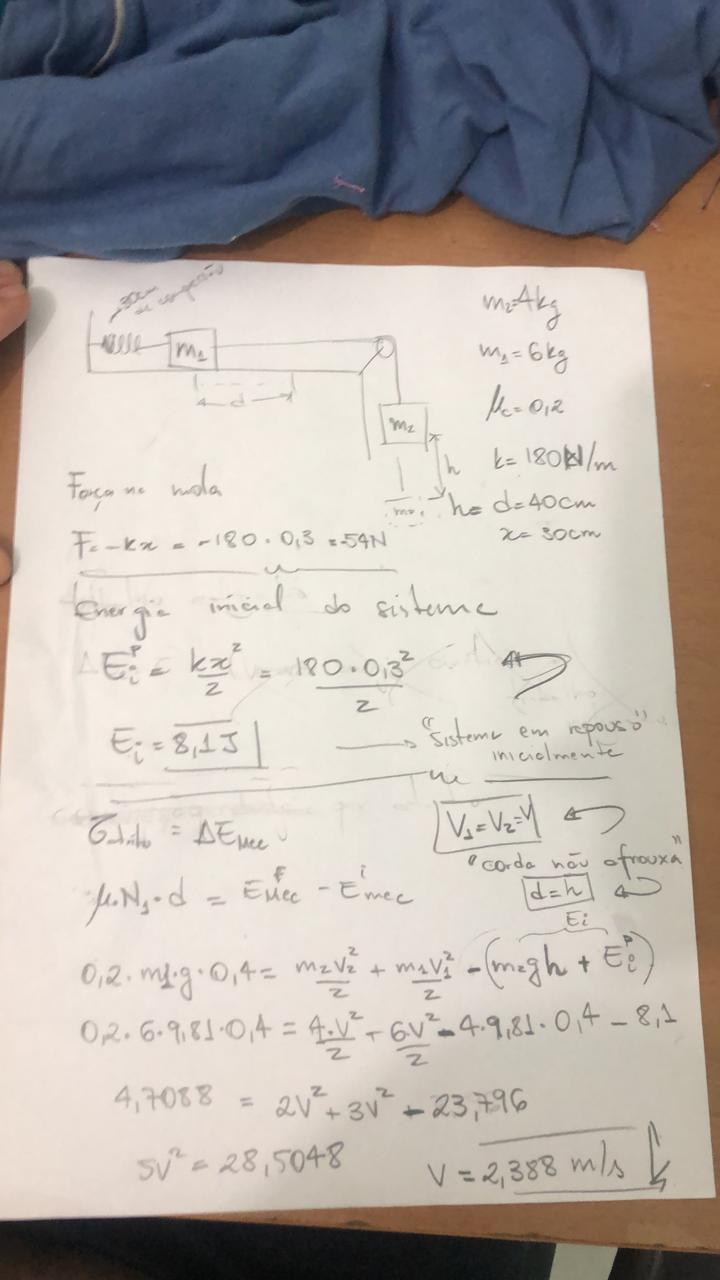 30cm
de compressão
m₁
d
m₂
h
m₂=4kg
m₁=6kg
μc=0,2
k=180N/m
h= d=40cm
x=30cm
Força na mola
F=-kx = -180·0,3 = -54N
Energia inicial do sistema
Eᵢᵖ = kx²/2 = 180·0,3²/2
Eᵢ = 8,1J → "Sistema em repouso" inicialmente
τatrito = ΔEMec
V₁=V₂=V
"corda não afrouxa"
μ·N₁·d = Eᶠmec - Eⁱmec
d=h
Ei
0,2·m1·g·0,4 = m₂V₂²/2 + m₁V₁²/2 - (m₂gh + Eᵢᵖ)
0,2·6·9,81·0,4 = 4·V²/2 + 6V²/2 - 4·9,81·0,4 - 8,1
4,7088 = 2V² + 3V² - 23,796
5V² = 28,5048
V = 2,388 m/s